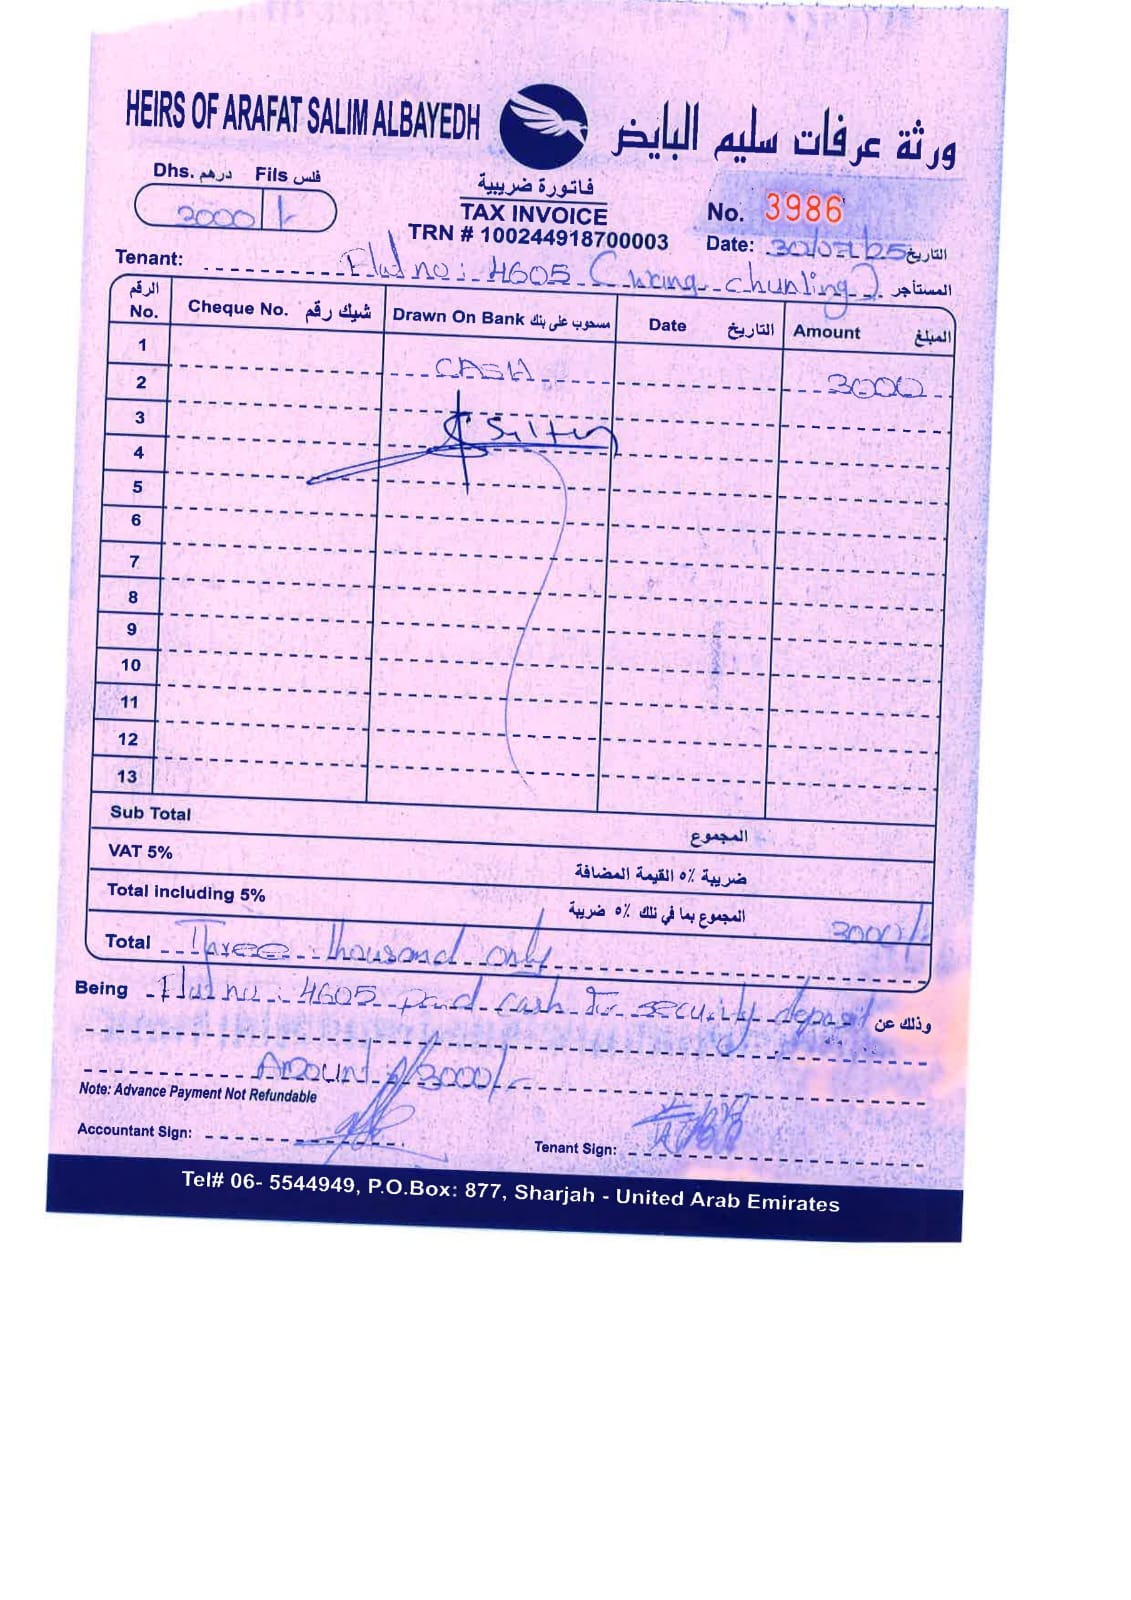 HEIRS OF ARAFAT SALIM ALBAYEDH
ورثة عرفات سليم البايض
Dhs. درهم Fils فلس
3000 /-
فاتورة ضريبية
TAX INVOICE
TRN # 100244918700003
No. 3986
Date: 30/07/25 التاريخ
Tenant: Flat no: 4605 (wang chunling) المستأجر
الرقم No. Cheque No. شيك رقم Drawn On Bank مسحوب على بنك Date التاريخ Amount المبلغ
1
2 CASH 3000
3
4
5
6
7
8
9
10
11
12
13
Sub Total المجموع
VAT 5% ضريبة ٥% القيمة المضافة
Total including 5% المجموع بما في ذلك ٥% ضريبة 3000/-
Total Three thousand only
Being Flat no: 4605 paid cash for security deposit وذلك عن
Amount 3000/-
Note: Advance Payment Not Refundable
Accountant Sign:
Tenant Sign:
Tel# 06- 5544949, P.O.Box: 877, Sharjah - United Arab Emirates